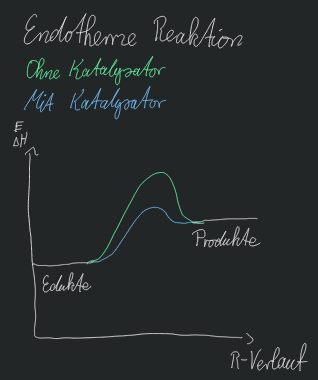 Endotherme Reaktion
Ohne Katalysator
Mit Katalysator
E
ΔH
Produkte
Edukte
R-Verlauf